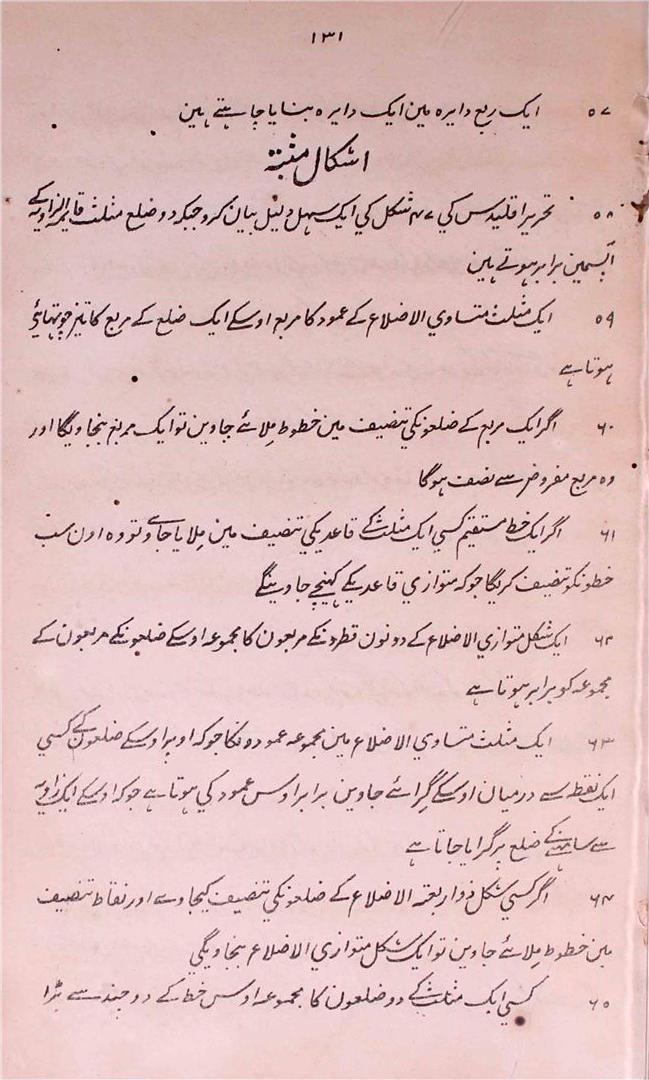 ۱۳۱
۵۷ ایک ربع دایرہ مین ایک دایرہ بنایا چاہتے ہین
اشکال مثبتہ
۵۸ تحریر اقلیدس کي ۴۷ شکل کي ایک سہل دلیل بیان کرو جبکہ دو ضلع مثلث قایمہ الزاویہ کے
آپسمین برابر ہوتے ہین
۵۹ ایک مثلث متساوي الاضلاع کے عمود کا مربع اوسکے ایک ضلع کے مربع کا تین چوتہائي
ہوتا ہے
۶۰ اگر ایک مربع کے ضلعونکي تنصیف مین خطوط ملائے جاوین تو ایک مربع بنجاویگا اور
وہ مربع مفروضہ سے نصف ہوگا
۶۱ اگر ایک خط مستقیم کسي ایک مثلث کے قاعدیکي تنصیف مین ملایا جاوے تو وہ اون سب
خطونکو تنصیف کریگا جو کہ متوازي قاعدیکے کہینچے جاوینگے
۶۲ ایک شکل متوازي الاضلاع کے دونون قطرونکے مربعون کا مجموعہ اوسکے ضلعونکے مربعون کے
مجموعہ کو برابر ہوتا ہے
۶۳ ایک مثلث متساوي الاضلاع مین مجموعہ عمودونکا جو کہ اوپر اوسکے ضلعون کے کسي
ایک نقطہ سے درمیان اوسکے گرائے جاوین برابر اوس عمود کي ہوتا ہے جو کہ اوسکے ایک زاویہ
سے سامہنے کے ضلع پر گرایا جاتا ہے
۶۴ اگر کسي شکل ذواربعتہ الاضلاع کے ضلعونکي تنصیف کیجاوے اور نقاط تنصیف
مین خطوط ملائے جاوین تو ایک شکل متوازي الاضلاع بنجاویگي
۶۵ کسي ایک مثلث کے دو ضلعون کا مجموعہ اوس خط کے دو چند سے بڑا